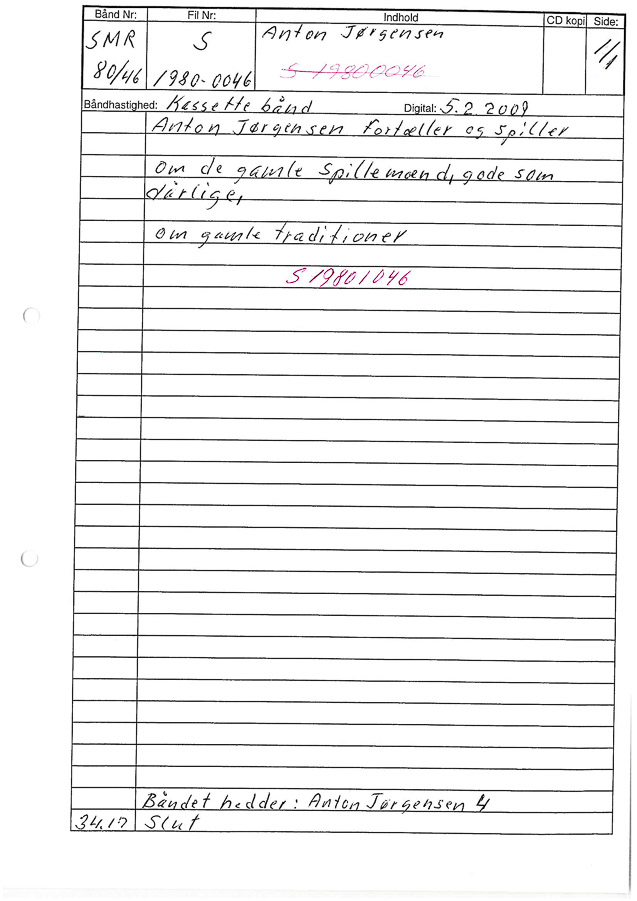 Bånd Nr: Fil Nr: Indhold CD kopi Side:
SMR S Anton Jørgensen 1/1
80/46 1980-0046 S 19800046
Båndhastighed: Kassette bånd Digital: 5.2.2009
Anton Jørgensen fortæller og spiller
om de gamle spillemænd, gode som
dårlige,
om gamle traditioner
S 19801046
Båndet hedder: Anton Jørgensen 4
34.17 Slut